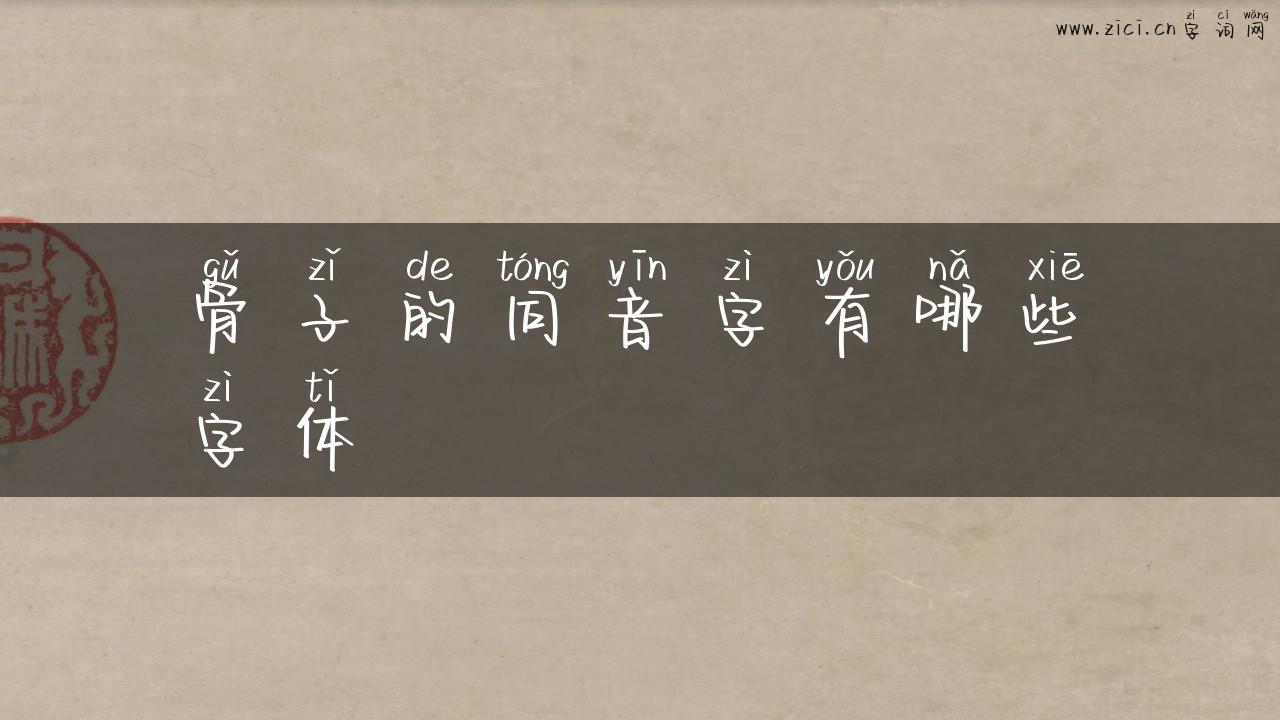 www.zici.cn字词网
zì cí wǎng
gǔ zǐ de tóng yīn zì yǒu nǎ xiē
骨子的同音字有哪些
zì tǐ
字体